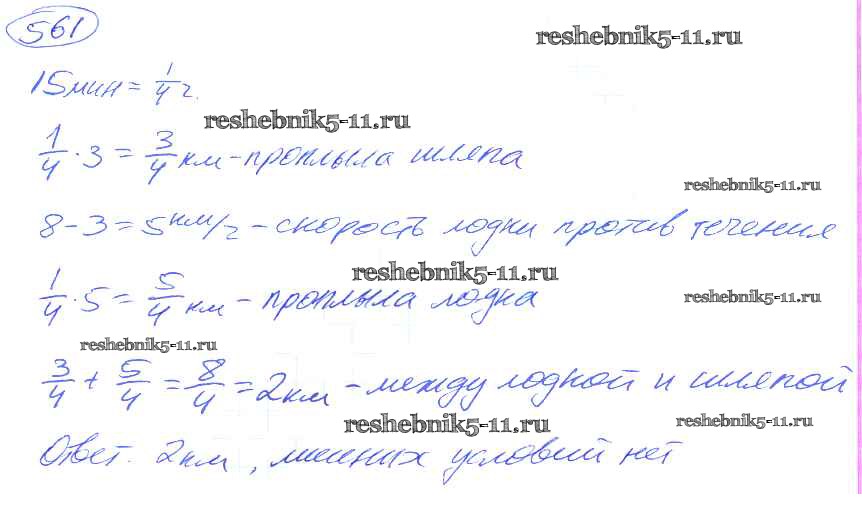 561
reshebnik5-11.ru
15мин = 1/4 ч.
reshebnik5-11.ru
1/4 · 3 = 3/4 км - проплыла шляпа
reshebnik5-11.ru
8 - 3 = 5 км/ч - скорость лодки против течения
reshebnik5-11.ru
1/4 · 5 = 5/4 км - проплыла лодка
reshebnik5-11.ru
reshebnik5-11.ru
3/4 + 5/4 = 8/4 = 2 км - между лодкой и шляпой
reshebnik5-11.ru
reshebnik5-11.ru
Ответ: 2 км, лишних условий нет